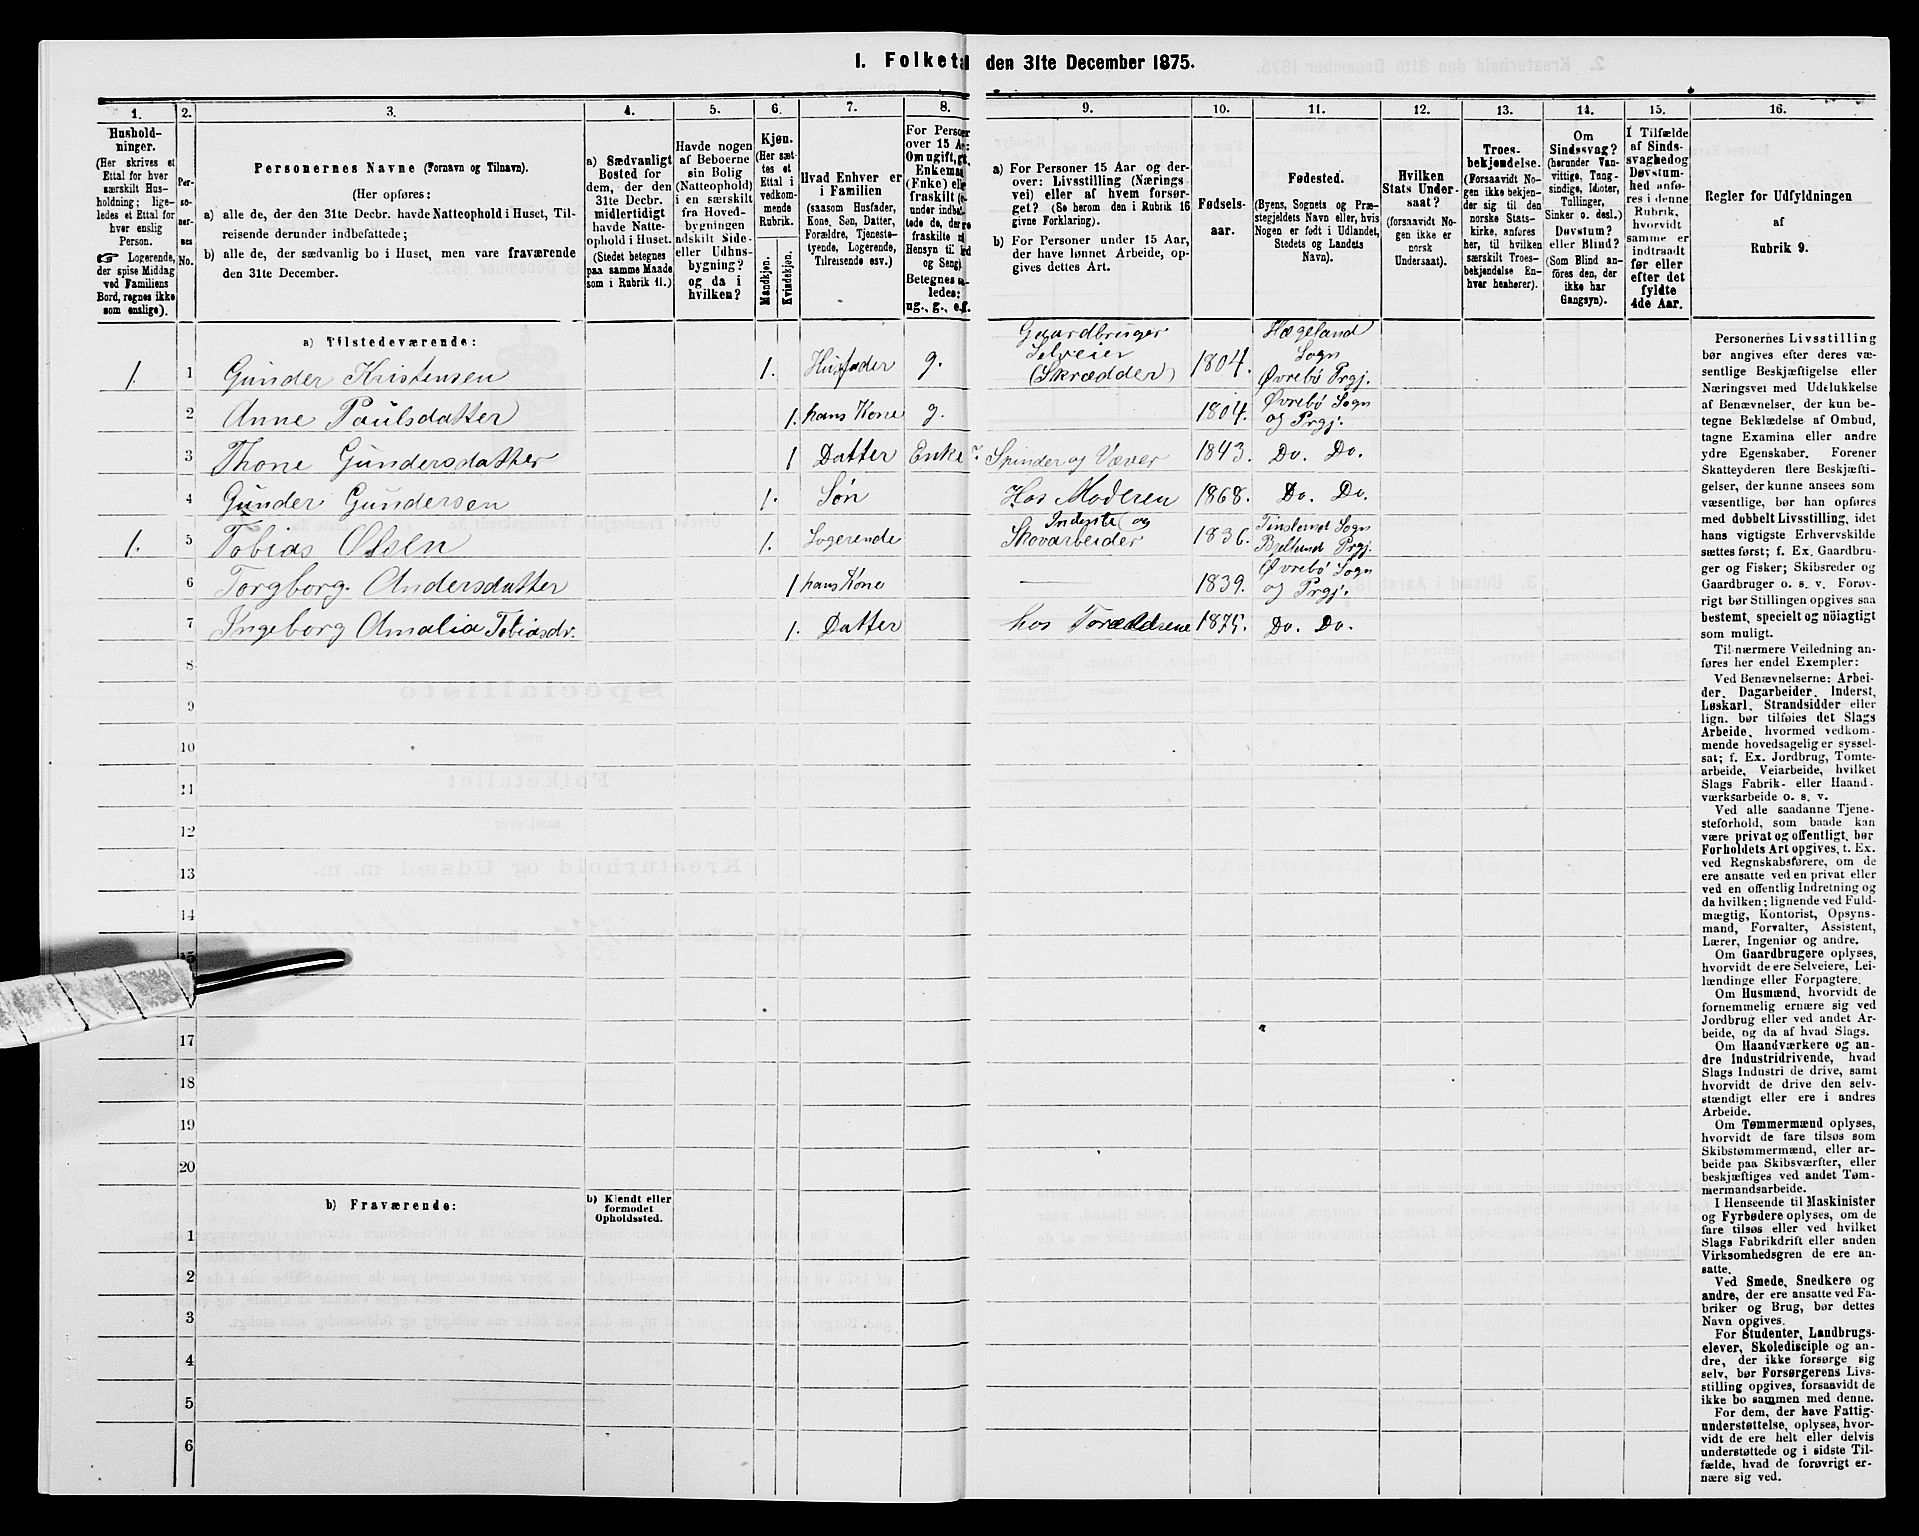 1. Folketal den 31te December 1875.
1.
Hushold-
ninger.
(Her skrives et
Ettal for hver
særskilt Hus-
holdning; lige-
ledes et Ettal for
hver enslig
Person.
☞ Logerende,
der spise Middag
ved Familiens
Bord, regnes ikke
som enslige).
2.
Per-
so-
ner-
nes
No.
3.
Personernes Navne (Fornavn og Tilnavn).
(Her opføres:
a) alle de, der den 31te Decbr. havde Natteophold i Huset, Til-
reisende derunder indbefattede;
b) alle de, der sædvanlig bo i Huset, men vare fraværende
den 31te December.
4.
a) Sædvanligt
Bosted for
dem, der den
31te Decbr.
midlertidigt
havde Natte-
ophold i Huset.
(Stedet betegnes
paa samme Maade
som i Rubrik 11.)
5.
Havde nogen
af Beboerne
sin Bolig
(Natteophold)
i en særskilt
fra Hoved-
bygningen
adskilt Side-
eller Udhus-
bygning?
og da i
hvilken?
6.
Kjøn.
(Her sæt-
tes et
Ettal i
vedkom-
mende
Rubrik.
Mandkjøn.
Kvindekjøn.
7.
Hvad Enhver er
i Familien
(saasom Husfader,
Kone, Søn, Datter,
Forældre, Tjeneste-
tyende, Logerende,
Tilreisende osv.)
8.
For Person
over 15 Aa
Om ugift, g
Enkema
(Enke) elle
fraskilt
under indbe
tede de, der
fraskilte
Hensyn til
og Seng).
Betegnes
ledes:
ug., g., e.
9.
a) For Personer 15 Aar og der-
over: Livsstilling (Nærings-
vei) eller af hvem forsør-
get? (Se herom den i Rubrik 16
givne Forklaring).
b) For Personer under 15 Aar,
der have lønnet Arbeide, op-
gives dettes Art.
10.
Fødsels-
aar.
11.
Fødested.
(Byens, Sognets og Præ-
stegjeldets Navn eller, hvis
Nogen er født i Udlandet,
Stedets og Landets
Navn).
12.
Hvilken
Stats Under-
saat?
(forsaavidt No-
gen ikke er
norsk
Undersaat).
13.
Troes-
bekjendelse.
(Forsaavidt No-
gen ikke bekjen-
der sig til den
norske Stats-
kirke, anføres
her, til hvilken
særskilt Troes-
bekjendelse En-
hver henhører).
14.
Om
Sindssvag?
(herunder Van-
vittige, Tung-
sindige, Idioter,
Tullinger,
Sinker o. desl.)
Døvstum?
eller Blind?
(Som Blind an-
føres den, der
ikke har
Gangsyn).
15.
I Tilfælde
af Sinds-
svaghed og
Døvstum-
hed anfø-
res i denne
Rubrik,
hvorvidt
samme er
indtraadt
før eller
efter det
fyldte
4de Aar.
16.
Regler for Udfyldningen
af
Rubrik 9.
a) Tilstedeværende:
1. 1 Gunder Kristensen 1. Husfader g. Gaardbruger Selveier (Skrædder) 1804. Hægeland Sogn Øvrebø Prgj.
2 Anne Paulsdatter 1. hans Kone g. 1804. Øvrebø Sogn og Prgj.
3 Thone Gundersdatter 1 Datter Enke Spinder og Væver 1843. Do. Do.
4 Gunder Gundersen 1. Søn Hos Moderen 1868. Do. Do.
1. 5 Tobias Olsen 1. Logerende Inderste og Skovarbeider 1836. Sogn Bjelland Prgj.
6 Torgborg Andersdatter 1 hans Kone 1839. Øvrebø Sogn og Prgj.
7 Ingeborg Amalia Tobiasdr. 1. Datter hos Forældrene 1875. Do. Do.
8
9
10
11
12
13
14
15
17
18
19
20
b) Fraværende:
b) Kjendt eller
formodet
Opholdssted.
1
2
3
4
5
6
Personernes Livsstilling
bør angives efter deres væ-
sentlige Beskjæftigelse eller
Næringsvei med Udelukkelse
af Benævnelser, der kun be-
tegne Beklædelse af Ombud,
tagne Examina eller andre
ydre Egenskaber. Forener
Skatteyderen flere Beskjæfti-
gelser, der kunne ansees som
væsentlige, bør han opføres
med dobbelt Livsstilling, idet
hans vigtigste Erhvervskilde
sættes først; f. Ex. Gaardbru-
ger og Fisker; Skibsreder og
Gaardbruger o. s. v. Forøv-
rigt bør Stillingen opgives saa
bestemt, specielt og nöiagtigt
som muligt.
Til nærmere Veiledning an-
føres her endel Exempler:
Ved Benævnelserne: Arbei-
der, Dagarbeider, Inderst,
Løskarl, Strandsidder eller
lign. bør tilføies det Slags
Arbeide, hvormed vedkom-
mende hovedsagelig er syssel-
sat; f. Ex. Jordbrug, Tomte-
arbeide, Veiarbeide, hvilket
Slags Fabrik- eller Haand-
værksarbeide o. s. v.
Ved alle saadanne Tjene-
steforhold, som baade kan
være privat og offentligt, bør
Forholdets Art opgives, t. Ex.
ved Regnskabsførere, om de
ere ansatte ved en privat eller
ved en offentlig Indretning og
da hvilken; lignende ved Fuld-
mægtig, Kontorist, Opsyns-
mand, Forvalter, Assistent,
Lærer, Ingeniør og andre.
Om Gaardbrugere oplyses,
hvorvidt de ere Selveiere, Lei-
lændinge eller Forpagtere.
Om Husmænd, hvorvidt de
fornemmelig ernære sig ved
Jordbrug eller ved andet Ar-
beide, og da af hvad Slags.
Om Haandværkere og an-
dre Industridrivende, hvad
Slags Industri de drive, samt
hvorvidt de drive den selv-
stændigt eller ere i andres
Arbeide.
Om Tømmermænd oplyses,
hvorvidt de fare tilsøs som
Skibstømmermænd, eller ar-
beide paa Skibsværfter, eller
beskjæftiges ved andet Tøm-
mermandsarbeide.
I Henseende til Maskinister
og Fyrbødere oplyses, om de
fare tilsøs eller ved hvilket
Slags Fabrikdrift eller anden
Virksomhedsgren de ere an-
satte.
Ved Smede, Snedkere og
andre, der ere ansatte ved Fa-
briker og Brug, bør dettes
Navn opgives.
For Studenter, Landbrugs-
elever, Skoledisciple og an-
dre, der ikke forsørge sig
selv, bør Forsørgerens Livs-
stilling opgives, forsaavidt de
ikke bo sammen med denne.
For dem, der have Fattig-
understøttelse, oplyses, hvor-
vidt de ere helt eller delvis
understøttede og i sidste Til-
fælde, hvad de forøvrigt er-
nære sig ved.